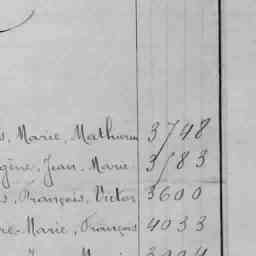 s, Marie, Mathurin 3748
gène, Jean-Marie 3583
s, François, Victor 3600
re-Marie, François 4033